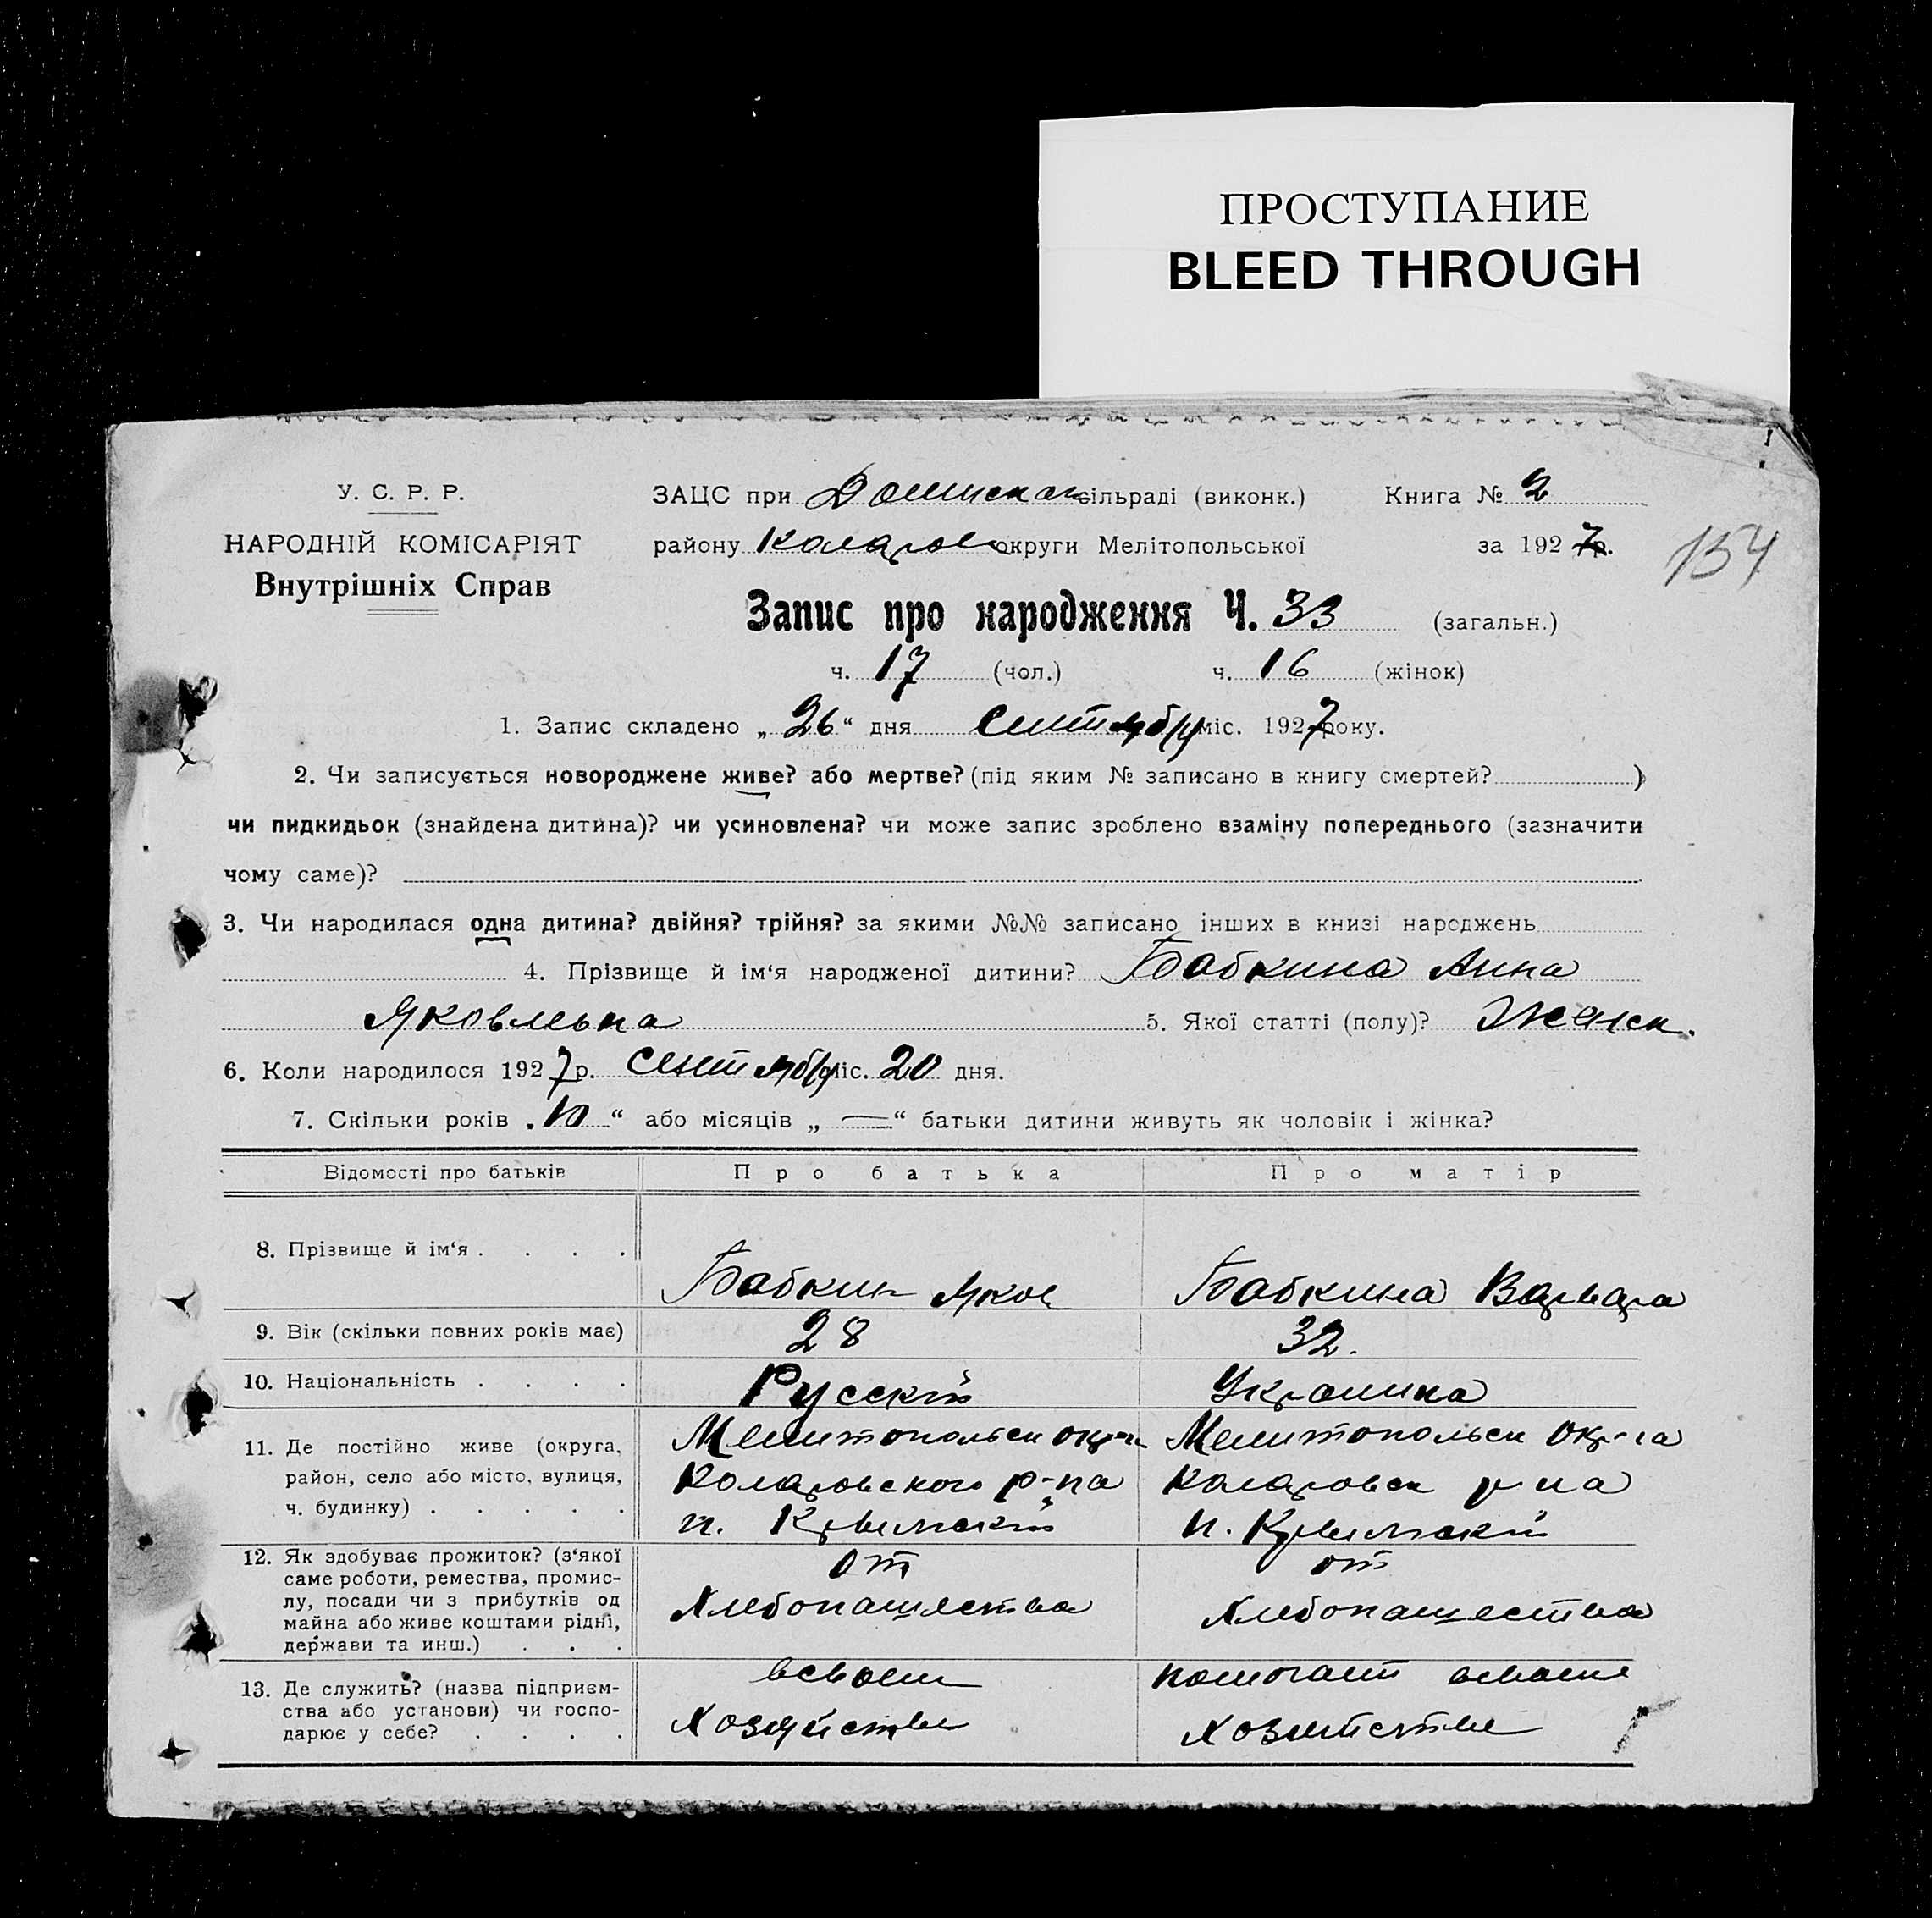 ПРОСТУПАНИЕ
BLEED THROUGH
У. С. Р. Р.
НАРОДНІЙ КОМІСАРІЯТ
Внутрішніх Справ
ЗАЦС при сільраді (виконк.) Книга № 2
району Коларов округи Мелітопольської за 1927 р.
154
Запис про народження Ч. 33 (загальн.)
ч. 17 (чол.) ч. 16 (жінок)
1. Запис складено „ 26 “ дня Сентября міс. 1927 року.
2. Чи записується новороджене живе? або мертве? (під яким № записано в книгу смертей? )
чи пидкидьок (знайдена дитина)? чи усиновлена? чи може запис зроблено взаміну попереднього (зазначити
чому саме)?
3. Чи народилася одна дитина? двійня? трійня? за якими №№ записано інших в книзі народжень
4. Прізвище й ім‘я народженої дитини? Бабкина Анна
Яковлевна 5. Якої статті (полу)? Женск.
6. Коли народилося 1927 р. Сентября міс. 20 дня.
7. Скільки років „ 10 “ або місяців „ — “ батьки дитини живуть як чоловік і жінка?
Відомості про батьків Про батька Про матір
8. Прізвище й ім‘я . . . . Бабкин Яков Бабкина Варвара
9. Вік (скільки повних років має) 28 32.
10. Національність . . . . Русский Украинка
11. Де постійно живе (округа, Мелитопольск округа Мелитопольск округа
район, село або місто, вулиця, Коларовского р-на Коларовск р-на
ч. будинку) . . . . . п. Крымский п. Крымский
12. Як здобуває прожиток? (з‘якої от от
саме роботи, ремества, промис-
лу, посади чи з прибутків од Хлебопашества Хлебопашества
майна або живе коштами рідні,
держави та инш.) . . .
13. Де служить? (назва підприєм- в своем помогает в своем
ства або установи) чи госпо- Хозяйстве Хозяйстве
дарює у себе? . . . .